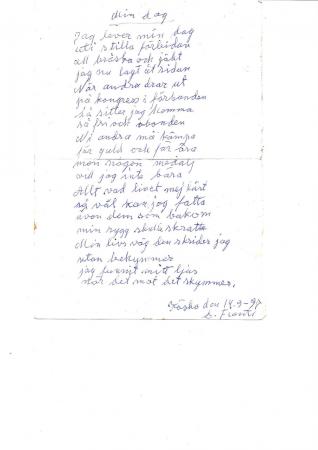 Min dag
Jag lever min dag
uti stilla förbidan
all brådska och jäkt
jag nu lagt åt sidan
När andra drar ut
på kongress i förbanden
så sitter jag hemma
så fri och obonden
Ni andra må kämpa
för guld och för ära
men någon medalj
vill jag inte bära
Allt vad livet mej lärt
så väl kan jag fatta
även dem som bakom
min rygg skulle skratta
Min livs väg den skrider jag
utan bekymmer
jag funnit mitt ljus
när det mot det skymmer.
den 14.9-97